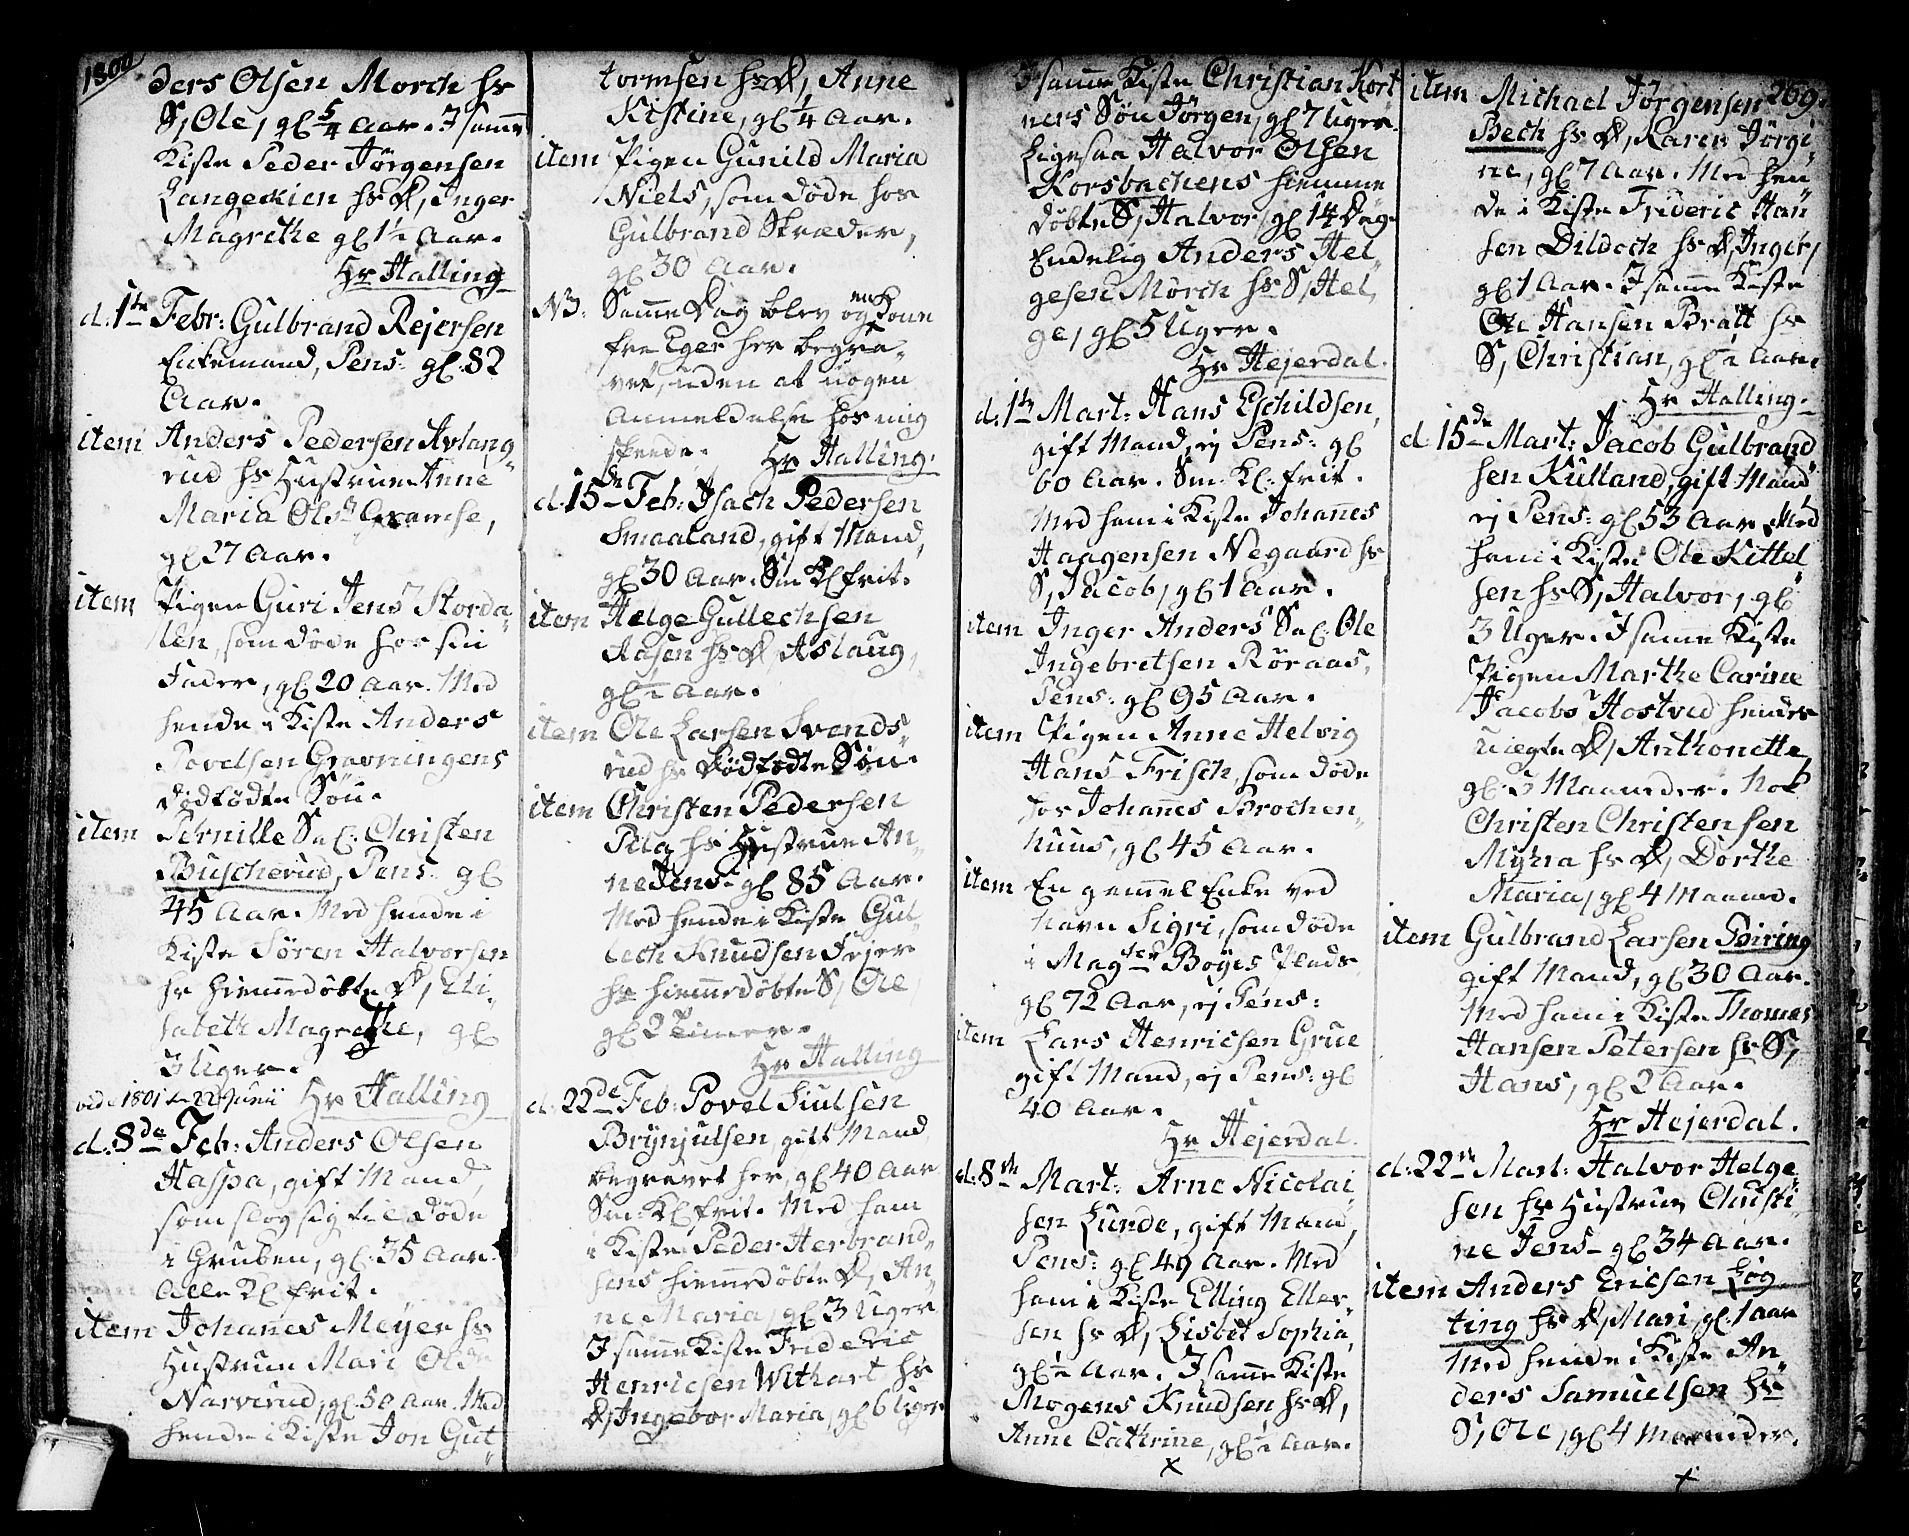 1800
ders Olsen Morch hs
S, Ole, gl 5/4 Aar. I samme
Kiste Peder Jörgensen
Langeckien hs D, Inger
Magrethe gl 1½ Aar.
Hr Halling
d. 1te Febr: Gulbrand Rejersen
Enkemand, Pens: gl. 82
Aar.
item Anders Pedersen Avlang
rud hs Hustrue Anne
Maria Ols Gramse,
gl 27 Aar.
item Pigen Guri Jens Storda
len, som døde hos sin
Fader, gl 20 Aar. Med
hende i Kiste Anders
Povelsen Gravningens
dödfödte Sön.
item Pernille Sal. Christen
Buscherud, Pens: gl
45 Aar. Med hende i
Kiste Sören Halvorsen
hs hiemmedöbte D, Eli,,
sabeth Magrethe, gl
3 Uger.
vid. 1801 d. 22 Junii Hr Halling
d. 8de Feb: Anders Olsen
Haspa, gift Mand,
som slog sig til døde
i Gruben, gl. 35 Aar.
Alle Kl frit.
item Johannes Meÿer hs
Hustrue Mari Ols
Narverud, gl. 50 Aar. Med
hende i Kiste Jon Gut,,
tormsen hs D, Anne
Kistine, gl ¼ Aar.
item Pigen Gunild Maria
Niels, som döde hos
Gulbrand Skræder,
gl 30 Aar.
NB: Samme Dag blev og en Kone
fra Eger her begra,,
vet, uden at nogen
Anmeldelse hos mig
skeede. Hr Halling.
d. 15de Feb: Isach Pedersen
Smaaland, gift Mand,
gl 30 Aar. Sm Kl frit.
item Helge Gullechsen
Aasen hs D, Aslaug,
gl ½ Aar.
item Ole Larsen Svends,,
rud hs Dödfödte Sön.
item Christen Pedersen
Pila hs Hustrue An,,
ne Jens gl 85 Aar.
Med hende i Kiste Gul,,
lech Knudsen Fejer
hs hiemmedöbte S, Ole,
gl 2 Timer.
Hr Halling
d. 22de Feb: Povel Siulsen
Brÿnjulsen, gift Mand,
begravet her, gl 40 Aar
Sm: Kl frit. Med ham
i Kiste Peder Herbrand,,
sens hiemmedöbte D, An,,
ne Maria, gl 3 Uger
I samme Kiste Frideric
Henricsen Withart hs
D, Ingebor Maria, gl 6 Uger.
I samme Kiste Christian Kort
ners Sön Jörgen, gl 7 Uger.
Ligesaa Halvor Olsen
Korsbachens hiemme
döbte S, Halvor, gl 14 Dag.
Endelig Anders Hel,,
gesen Mörch hs S, Hel,,
ge, gl 5 Uger.
Hr Hejerdal.
d. 1te Mart: Hans Eschildsen,
gift Mand, ej Pens: gl
60 Aar. Sm. Kl: frit.
Med ham i Kiste Johannes
Haagensen Negaard hs
S, Jacob, gl 1 Aar.
item Inger Anders Sal: Ole
Ingebretsen Röraas,
Pens: gl 95 Aar.
item Pigen Anne Helvig
Hans Frisch, som døde
hos Johannes Brochen,,
huus, gl 45 Aar.
item En gammel Enke ved
Navn Sigri, som døde
i Mag Böÿes Plads
gl 72 Aar, ej Pens:
item Lars Henricsen Grue
gift Mand, ej Pens: gl
40 Aar.
Hr Hejerdal.
d. 8de Mart: Arne Nicolai,,
sen Lunde, gift Mand,
Pens: gl 49 Aar. Med
ham i Kiste Elling Eller,,
sen hs D, Lisbet Sophia,
gl ½ Aar. I samme Kiste
Mogens Knudsen hs D,
Anne Cathrine, gl ½ Aar.
x
269.
item Michael Jörgensen
Bech hs D, Karen Jörgi,,
ne, gl 7 Aar. Med hen,,
de i Kiste Frideric Han,,
sen Dildoch hs D, Inger,
gl 1 Aar. I samme Kiste
Ole Hansen Bratt hs
S, Christian, gl ½ Aar.
Hr Halling.
d. 15de Mart: Jacob Gulbrand
sen Kulland, gift Mand,
ej Pens: gl 53 Aar. Med
ham i Kiste Ole Kittel,,
sen hs S, Halvor, gl
3 Uger. I samme Kiste
Pigen Marthe Carine
Jacobs Hostved hendes
uægte D, Anthonette,
gl 3 Maaneder. Nok
Christen Christensen
Mÿhra hs D, Dorthe
Maria, gl 4 Maaned.
item Gulbrand Larsen Poiring
gift Mand, gl 30 Aar.
Med ham i Kiste Thomas
Hansen Petersen hs S,
Hans, gl 2 Aar.
Hr Hejerdal.
d. 22de Mart: Halvor Helge,,
sen hs Hustrue Christi,,
ne Jens gl 34 Aar.
item Anders Ericsen Løg
ting hs D, Mari, gl. 1 Aar
Med hende i Kiste An,,
ders Samuelsen hs
S, Ole, gl 4 Maaneder.
x